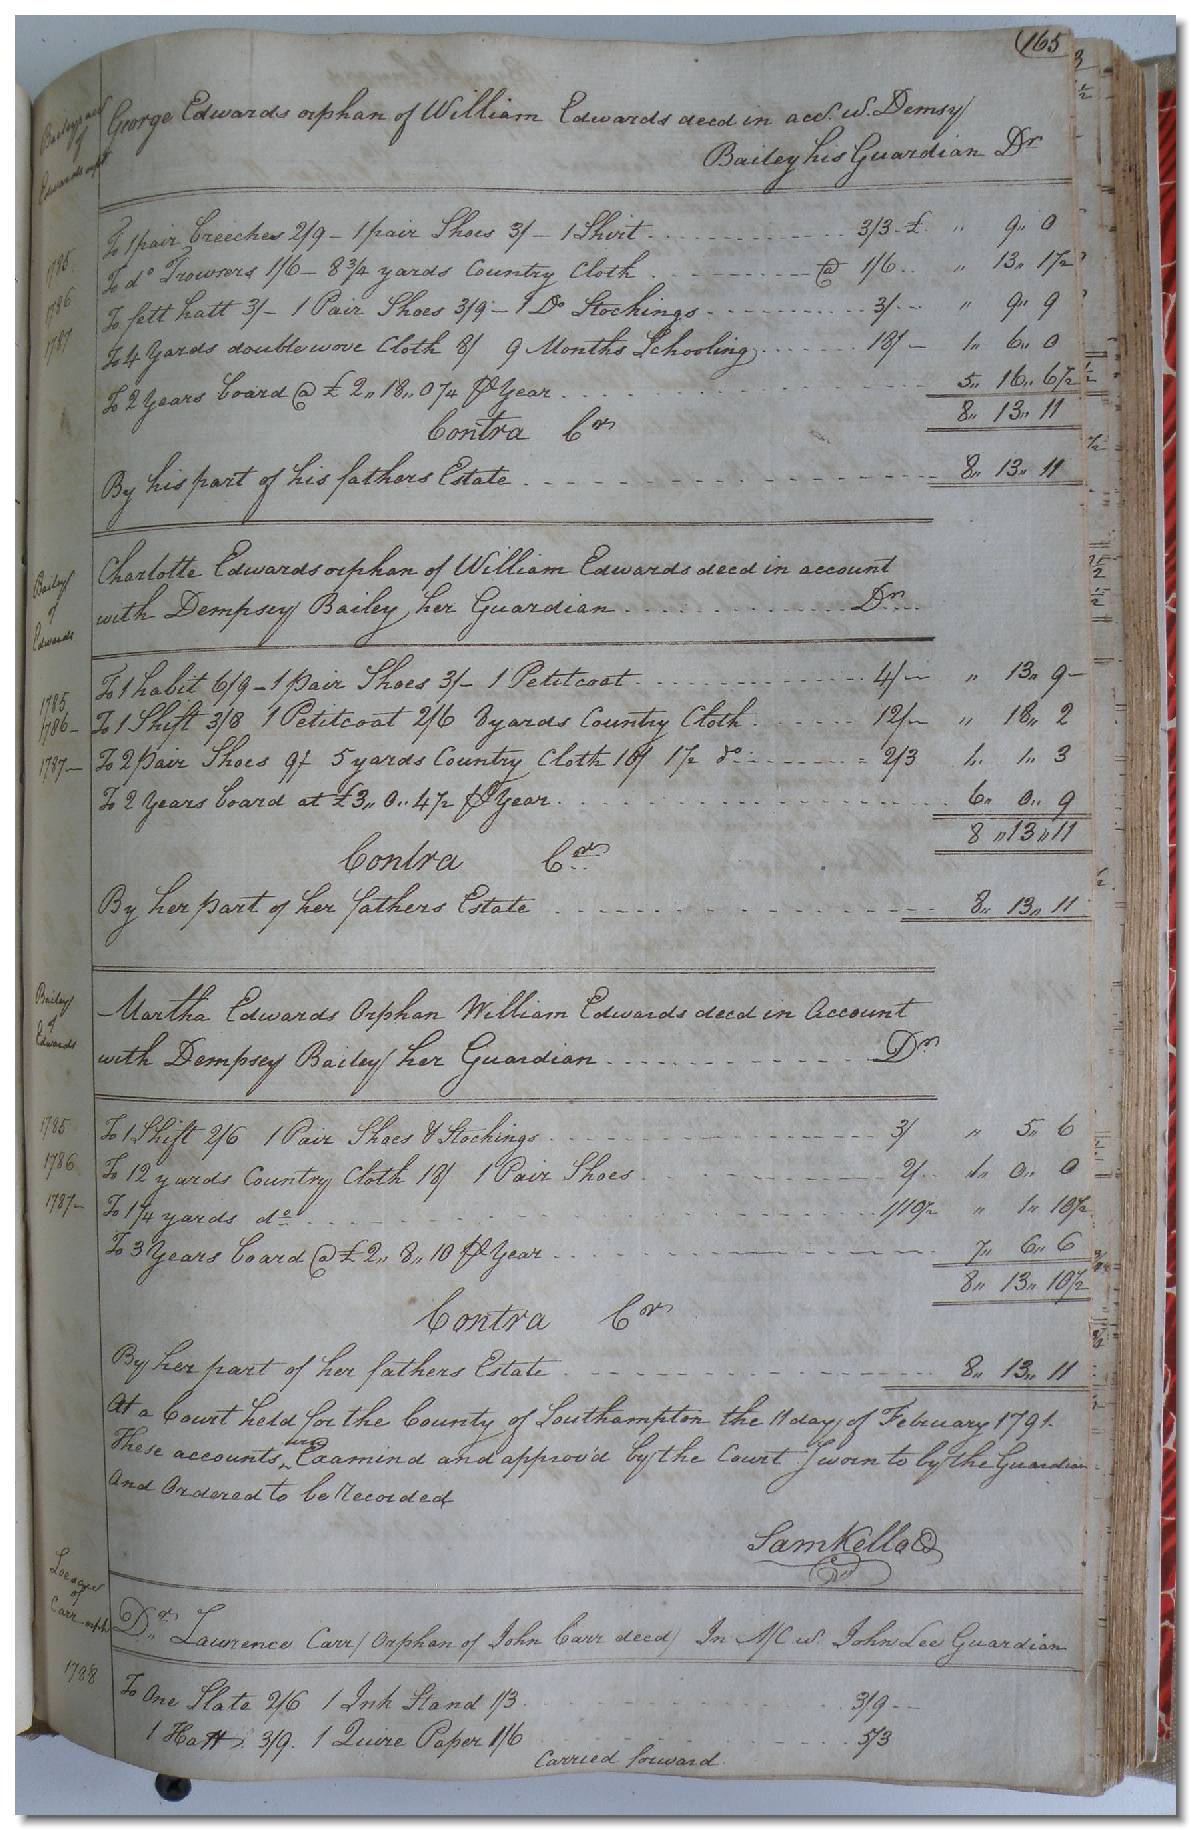 165
Baileys acct
of
Edwards orpt
George Edwards orphan of William Edwards decd in acct. w. Demsy
Bailey his Guardian Dr
1785 To 1 pair breeches 2/9 - 1 pair Shoes 3/- 1 Shirt 3/3 - £ " 9" 0
To do Trowsers 1/6 - 8 3/4 yards Country Cloth @ 1/6 " 13" 1 1/2
1786 To fett hatt 3/- 1 Pair Shoes 3/9 - 1 Do Stockings 3/- " 9" 9
1787 To 4 yards double wove Cloth 8/ 9 Months Schooling 18/- 1" 6" 0
To 2 years board @ £ 2" 18" 0 1/4 ⅌ year 5" 16" 6 1/2
8" 13" 11
Contra Cr
By his part of his fathers Estate 8" 13" 11
Bailey
of
Edwards
Charlotte Edwards orphan of William Edwards decd in account
with Dempsey Bailey her Guardian Dr
1785 To 1 habit 6/9 - 1 pair Shoes 3/- 1 Petitcoat 4/- " 13" 9-
1786- To 1 Shift 3/8 1 Petitcoat 2/6 8 yards Country Cloth 12/- " 18" 2
1787- To 2 pair Shoes 9/ 5 yards Country Cloth 10/ 1 1/2 do 2/3 1" 1" 3
To 2 years board at £3" 0" 4 1/2 ⅌ year 6" 0" 9
8 " 13 " 11
Contra Cr
By her part of her fathers Estate 8" 13" 11
Bailey
of
Edwards
Martha Edwards Orphan William Edwards decd in Account
with Dempsey Bailey her Guardian Dr
1785 To 1 Shift 2/6 1 Pair Shoes & Stockings 3/ " 5" 6
1786 To 12 yards Country Cloth 18/ 1 Pair Shoes 2/ 1" 0" 0
1787- To 1 1/4 yards do 1/10 1/2 " 1" 10 1/2
To 3 years board @ £ 2" 8" 10 ⅌ year 7" 6" 6
8" 13" 10 1/2
Contra Cr
By her part of her fathers Estate 8" 13" 11
At a Court held for the County of Southampton the 11 day of February 1791.
These accounts were Examind and approv'd by the Court Sworn to by the Guardian
And Ordered to be Recorded
Sam Kello
of
Carr orph
Dr Lawrence Carr (Orphan of John Carr decd) In A/C w. John Lee Guardian
1788 To One Slate 2/6 1 Ink Stand 1/3 3/9 -
1 Hatt 3/9. 1 Quire Paper 1/6 5/3
Carried forward